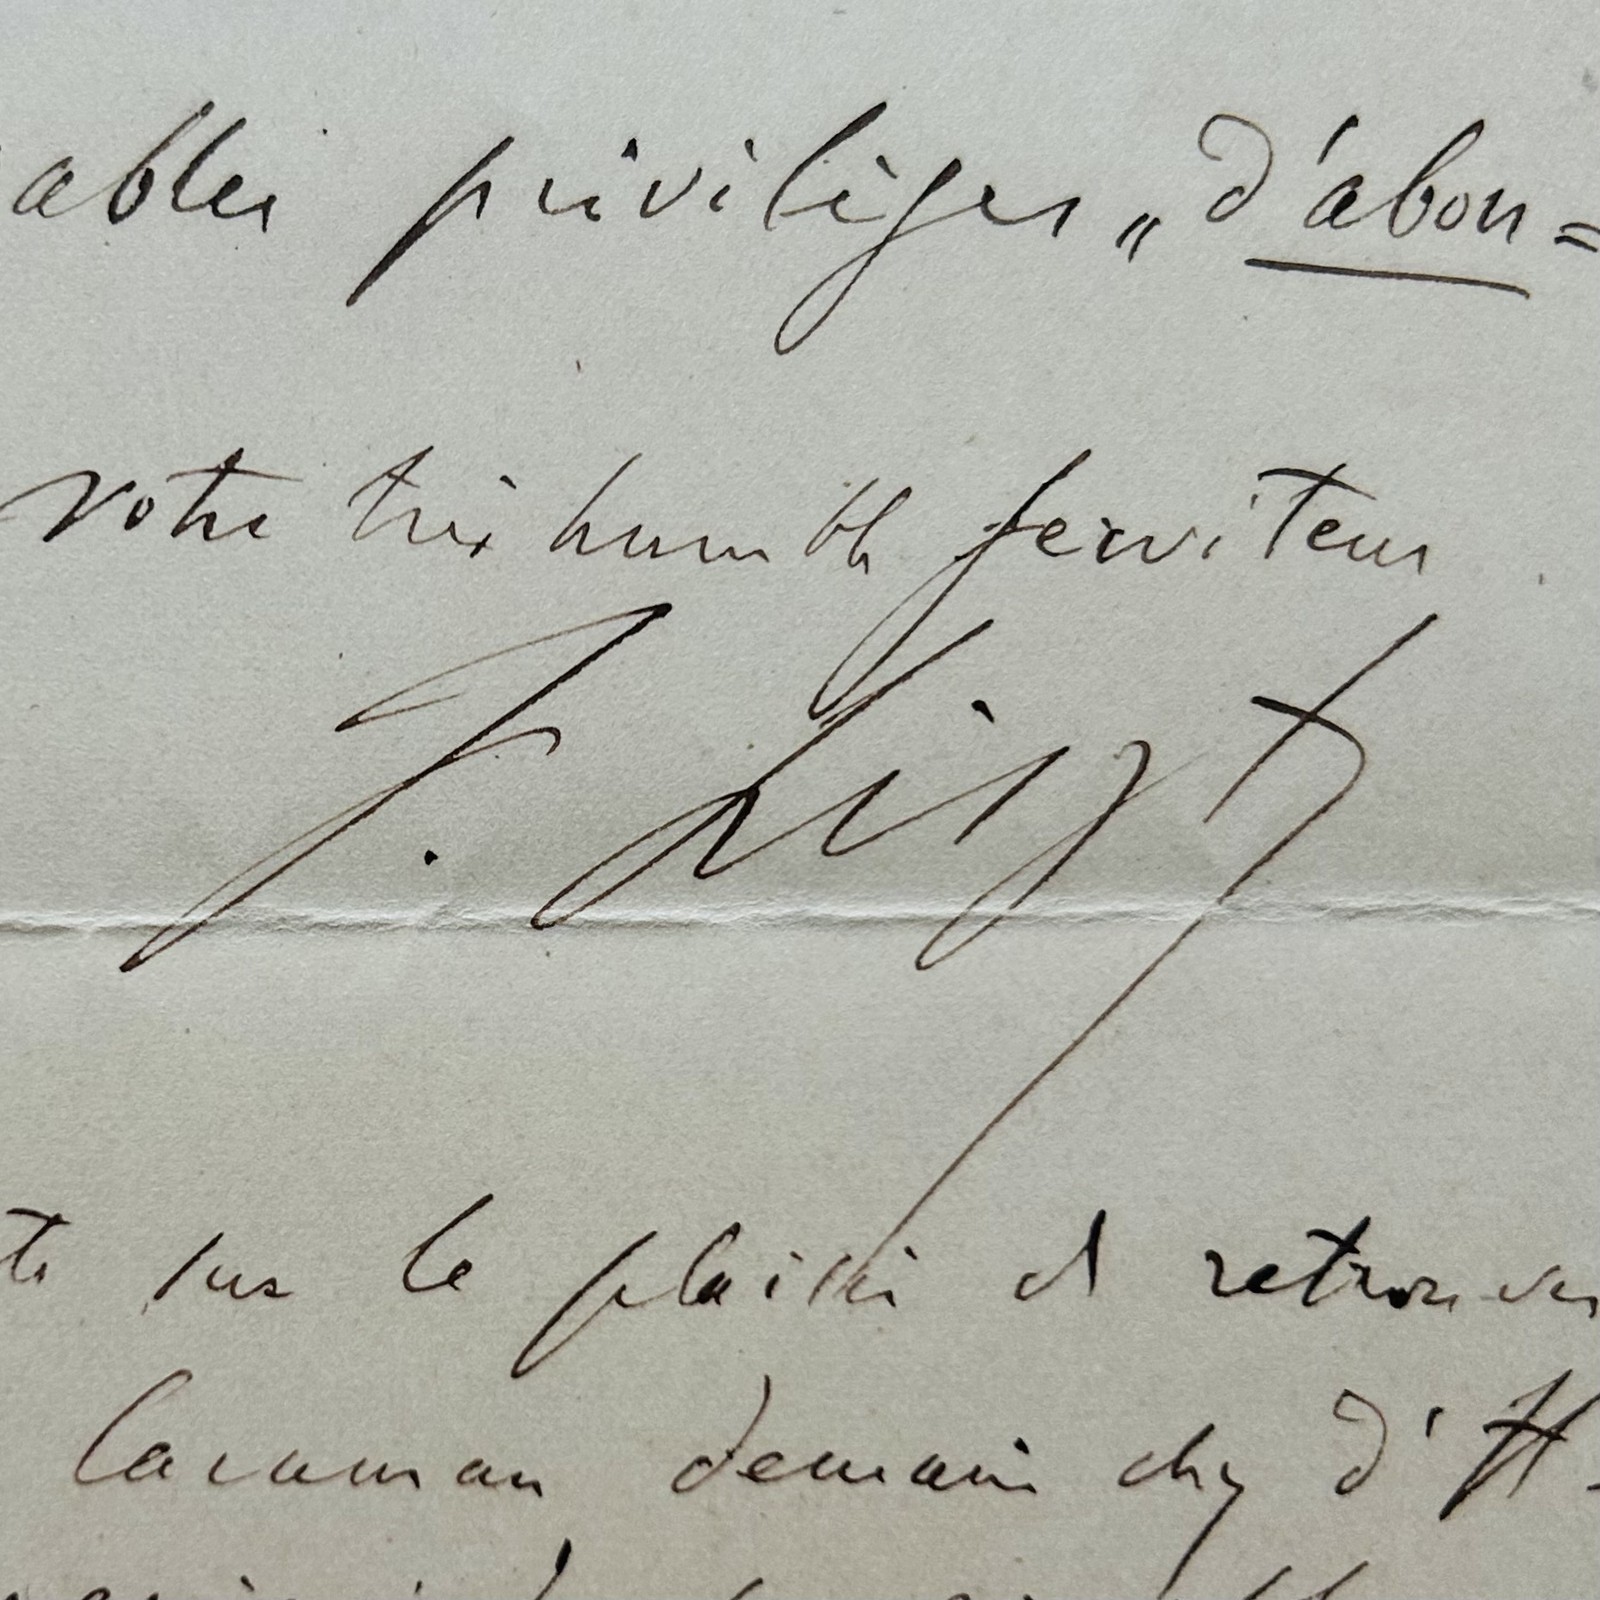 ables privilèges „d'abon=
votre très humble serviteur
F. Liszt
sur le plaisir de retrouver
Caraman demain chez d'H